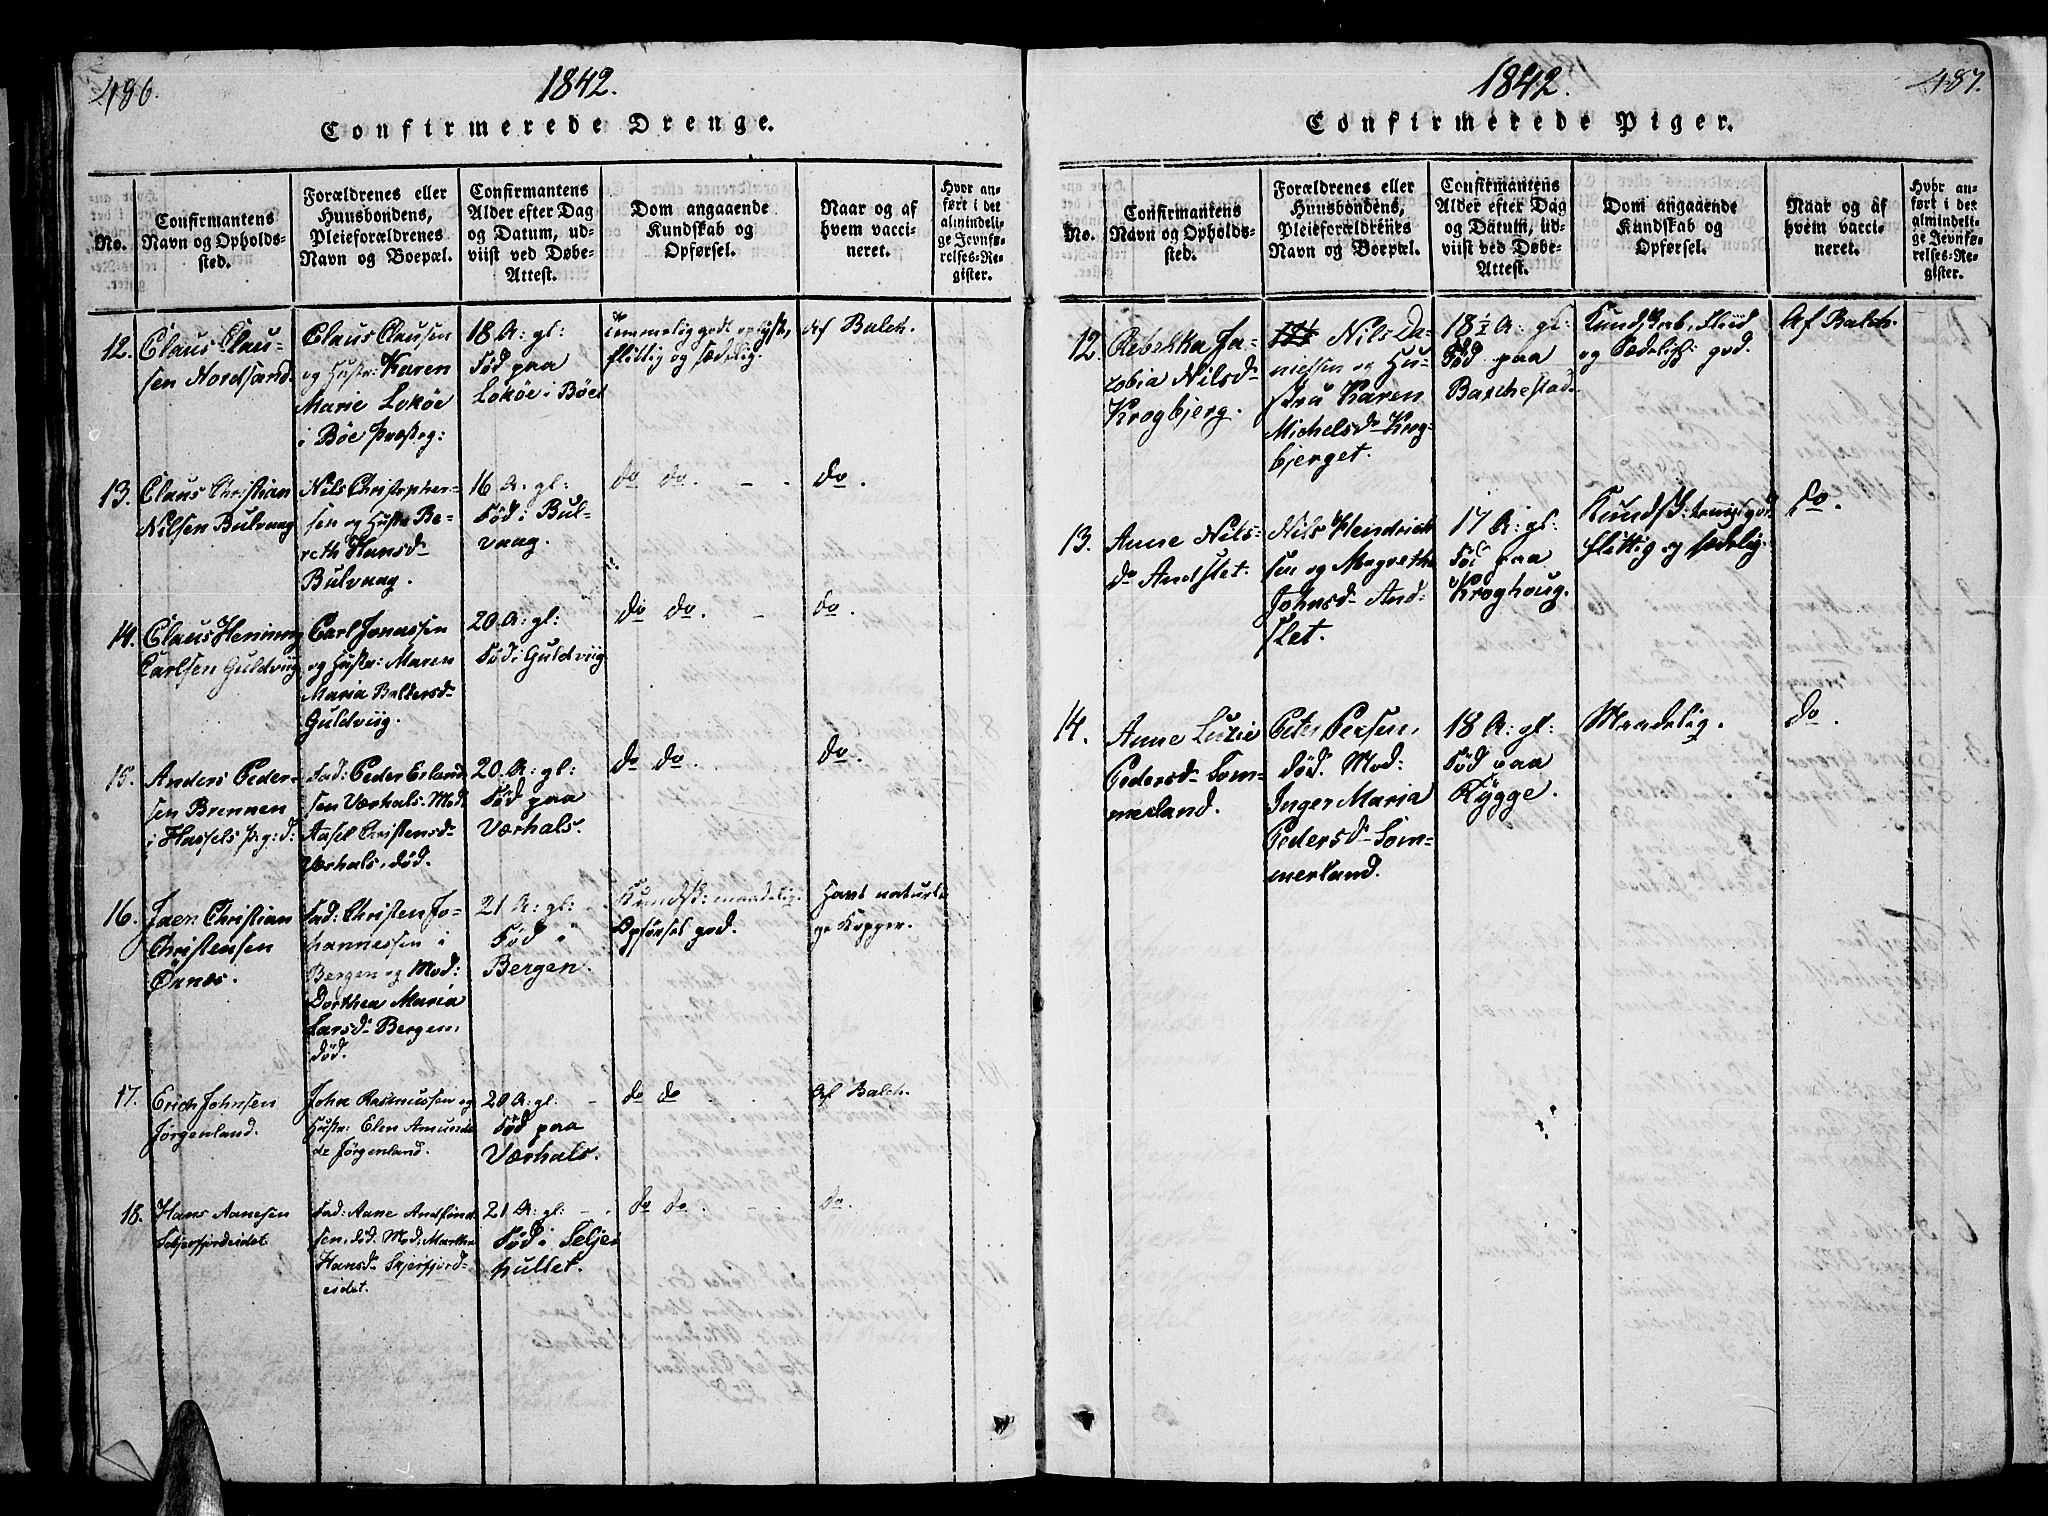 486.
1842.
Confirmerede Drenge.
No.
Confirmantens
Navn og Opholds-
sted.
Forældrenes eller
Huusbondens,
Pleieforældrenes
Navn og Boepæl.
Confirmantens
Alder efter Dag
og Datum, ud-
viist ved Døbe-
Attest.
Dom angaaende
Kundskab og
Opførsel.
Naar og af
hvem vacci-
neret.
Hvor an-
ført i det
almindeli-
ge Jevnfø-
relses-Re-
gister.
12.
Claus Clau-
sen Nordsand.
Claus Clausen
og Hustr: Karen
Marie Lokøe
i Böe Præsteg:
18 A: gl:
Föd paa
Lokøe i Böe
temmelig godt oplyst,
flittig og sædelig.
Af Balch.
13.
Claus Christian
Nilsen Bulvaag
Nils Christopher-
sen og Hustr Be-
reth Hansd
Bulvaag.
16 A: gl:
Föd i Bul-
vaag.
do do. - .
do.
14.
Claus Henning
Carlsen Guldviig
Carl Jonassen
og Hustr: Maren
Maria Baltersd
Guldviig.
20 A: gl:
Föd i Guldviig
do do. -
do.
15.
Anders Peder-
sen Brennen
i Hassels Pr:g:d:
Fad: Peder Erland
sen Værhals. Mod
Aasel Christensd
Værhals, död.
20. A: gl:
Föd paa
Værhals.
do do. .
do.
16.
Jaen Christian
Christensen
Örnæs.
Fad: Christen Jo-
hannessen i
Bergen og Mod:
Dorthea Maria
Larsd Bergen,
död.
21 A: gl:
Föd i
Bergen.
Kundsk: maadelig.
Opförsel god.
Havt naturli
ge Kopper.
17.
Erich Johnsen
Jörgenland.
John Rasmussen og
Hustr: Elen Amunds
dr Jörgenland.
20 A: gl:
Föd paa
Værhals.
do do
Af Balch.
18.
Hans Aanesen
Skjerfjordeidet
Fad: Aane Andfind
sen, död. Mod: Martha
Hansd Skjerfjord-
eidet.
21 A: gl:
Föd i Selje
hullet.
do do. -
do.
1842.
487.
Confirmerede Piger.
No.
Confirmantens
Navn og Opholds-
sted.
Forældrenes eller
Huusbondens,
Pleieforældrenes
Navn og Boepæl.
Confirmantens
Alder efter Dag
og Datum, ud-
viist ved Døbe-
Attest.
Dom angaaende
Kundskab og
Opførsel.
Naar og af
hvem vacci-
neret.
Hvor an-
ført i det
almindeli-
ge Jevnfø-
relses-Re-
gister.
12.
Rebekka Ja-
cobia Nilsd
Krogbjerg.
Nils Da-
nielsen og Hu-
stru Karen
Michelsd Krog-
bjerget.
18½ A: gl:
Föd paa
Barchestad.
Kundskab, Flid
og Sædeligh: god.
Af Balch.
13.
Anne Nils-
dr Andslet.
Nils Hendrich
sen og Magrethe
Johnsd And-
slet.
17 A: gl:
Föd paa
Kroghoug.
Kundsk: temlig god
flittig og sædelig.
do.
14.
Anne Luzie
Pedersd Som-
merland.
Peter Persen,
död. Mod:
Inger Maria
Pedersd Som-
merland.
18 A: gl:
Föd paa
Rygge.
Maadelig.
do